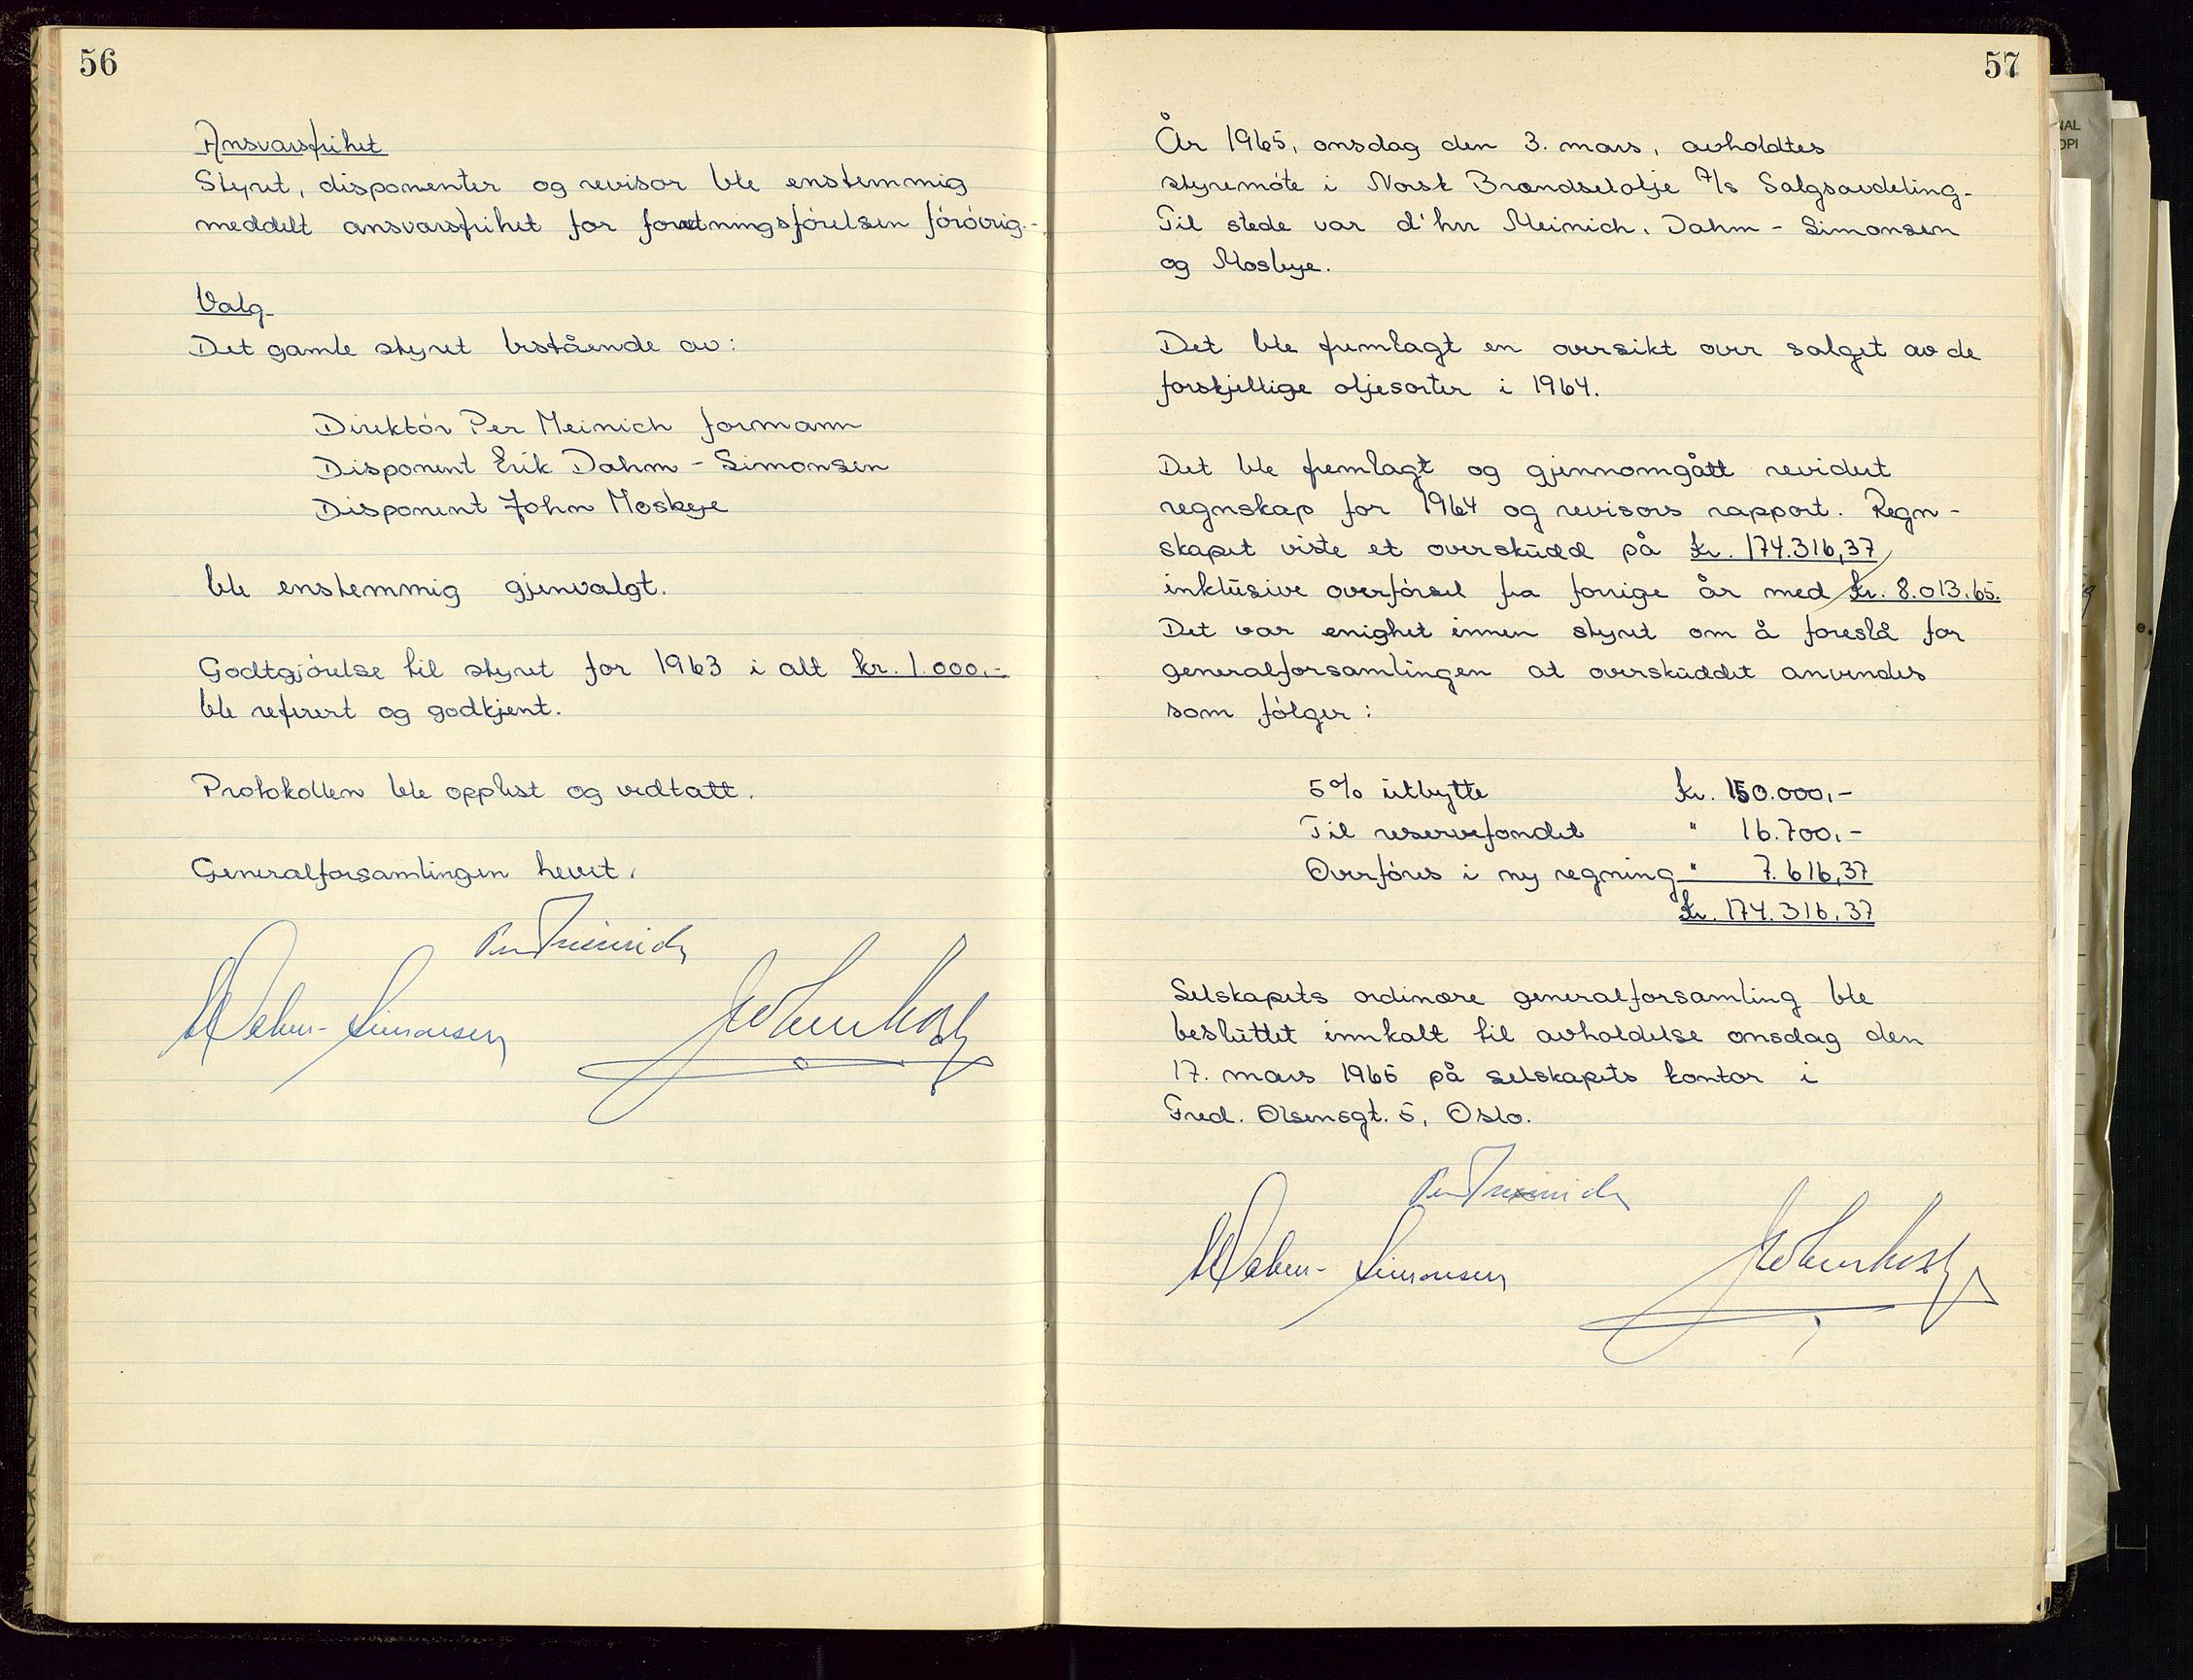 56
Ansvarsfrihet
Styret, disponenter og revisor ble enstemmig
meddelt ansvarsfrihet for forretningsförelsen föróvrig.-
Valg
Det gamle styret bestående av:
Direktór Per Meinich formann
Disponent Erik Dahm - Simonsen
Disponent John Moskeye
ble enstemmig gjenvalgt.
Godtgjórelse til styret for 1963 i alt kr. 1.000,-
ble referert og godkjent.
Protokollen ble opplest og vedtatt.
Generalforsamlingen hevet.
Per Meinich
Dahm-Simonsen
57
År 1965, onsdag den 3. mars, avholdtes
styremóte i Norsk Brændselolje A/s Salgsavdeling.
Til stede var d'hrr Meinich, Dahm - Simonsen
og Moskeye.
Det ble fremlagt en oversikt over salget av de
forskjellige oljesorter i 1964.
Det ble fremlagt og gjennomgått revidert
regnskap for 1964 og revisors rapport. Regn-
skapet viste et overskudd på kr. 174.316,37
inklusive overfórsel fra forrige år med kr. 8.013,65.
Det var enighet innen styret om å foreslå for
generalforsamlingen at overskuddet anvendes
som fólger:
5% utbytte kr. 150.000,-
Til reservefondet " 16.700,-
Overfóres i ny regning " 7.616,37
kr. 174.316,37
Selskapets ordinære generalforsamling ble
besluttet innkalt til avholdelse onsdag den
17. mars 1965 på selskapets kontor i
Fred. Olsensgt. 5, Oslo.
Per Meinich
Dahm-Simonsen